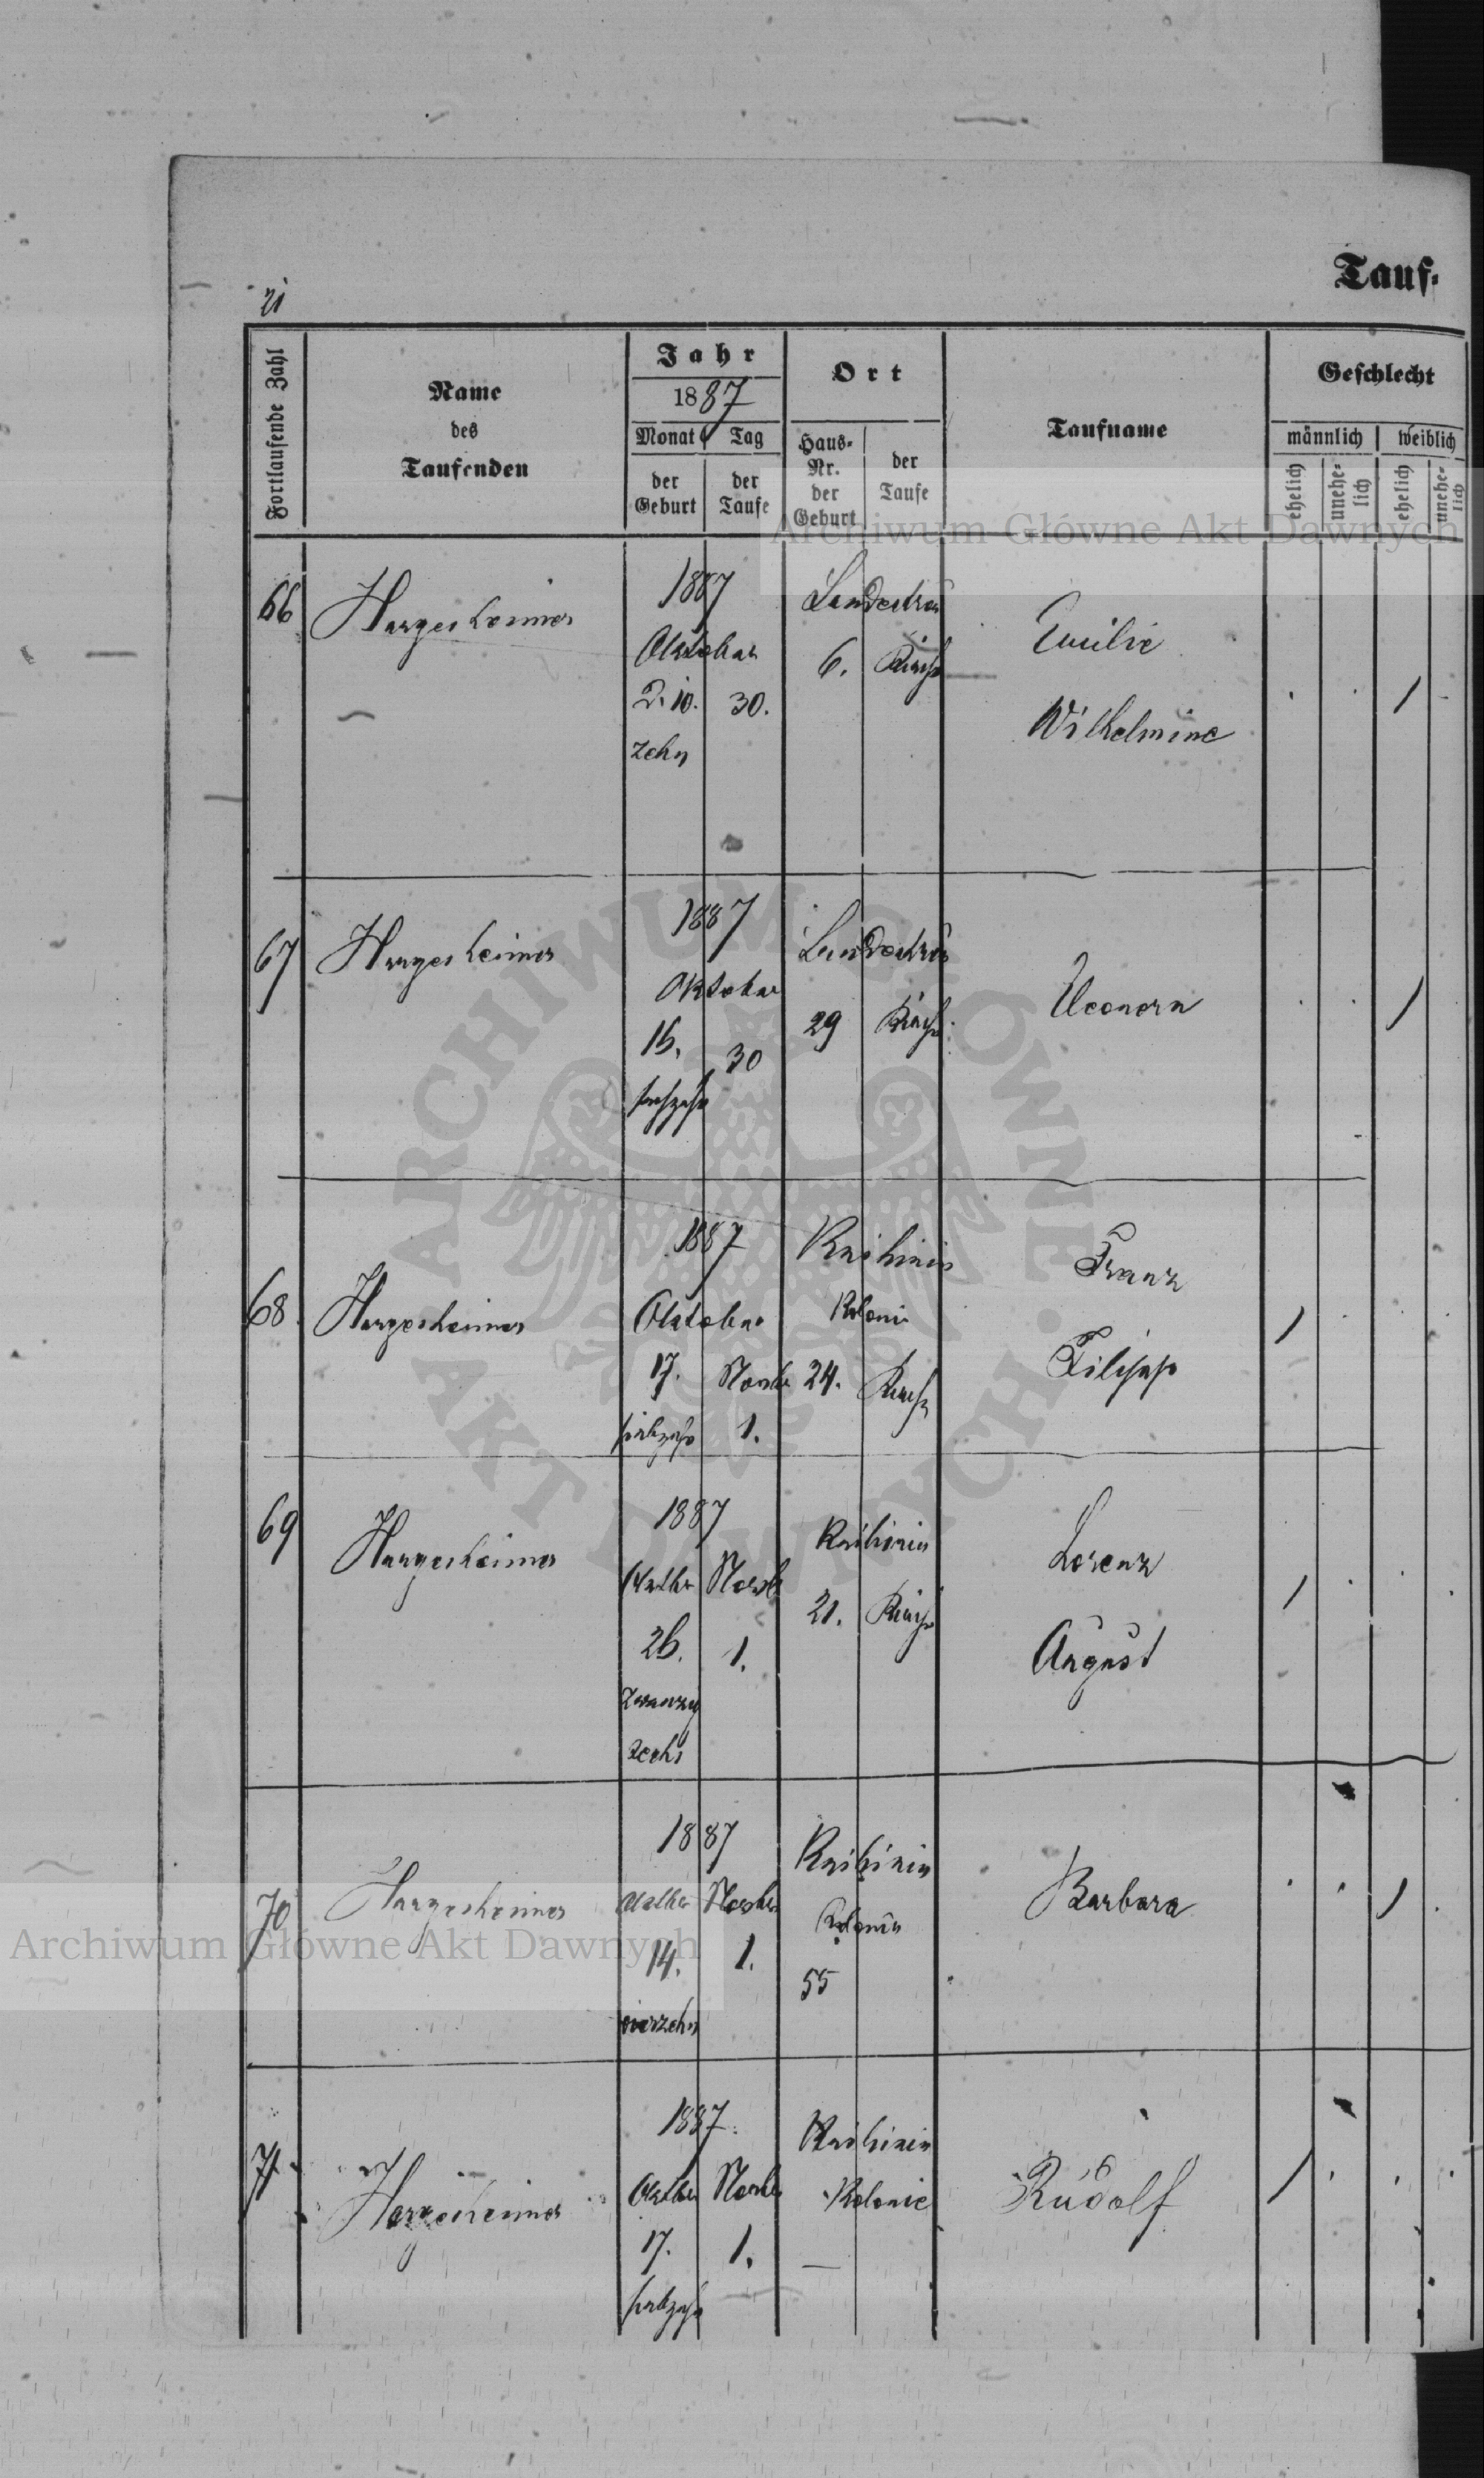 21
Tauf-
Fortlaufende Zahl
Name
des
Taufenden
Jahr
1887
Monat Tag
der Geburt
der Taufe
Ort
Haus-Nr. der Geburt
der Taufe
Taufname
Geschlecht
männlich weiblich
ehelich
unehe-lich
ehelich
unehe-lich
Archiwum Główne Akt Dawnych
66 Hargesheimer
1887
Oktober
2. 10. 30.
zehn
Landestreu
6. Kirche
Emilie
Wilhelmine
67 Hargesheimer
1887
Oktober
16. 30
sechzehn
Landestreu
29 Kirche
Eleonora
68. Hargesheimer
1887
Oktober
17. Novbr
siebzehn 1.
Knihinin
Kolonie
24. Kirche
Franz
Filipp
69 Hargesheimer
1887
Octbr Novb
26. 1.
zwanzig
sechs
Knihinin
21. Kirche
Lorenz
August
70 Hargesheimer
1887
Octbr Novbr
14. 1.
vierzehn
Knihinin
Kolonie
55
Barbara
71. Hargesheimer
1887.
Octbr Novbr
17. 1.
siebzehn
Knihinin
Kolonie
—
Rudolf
ARCHIWUM GŁÓWNE AKT DAWNYCH
Archiwum Główne Akt Dawnych